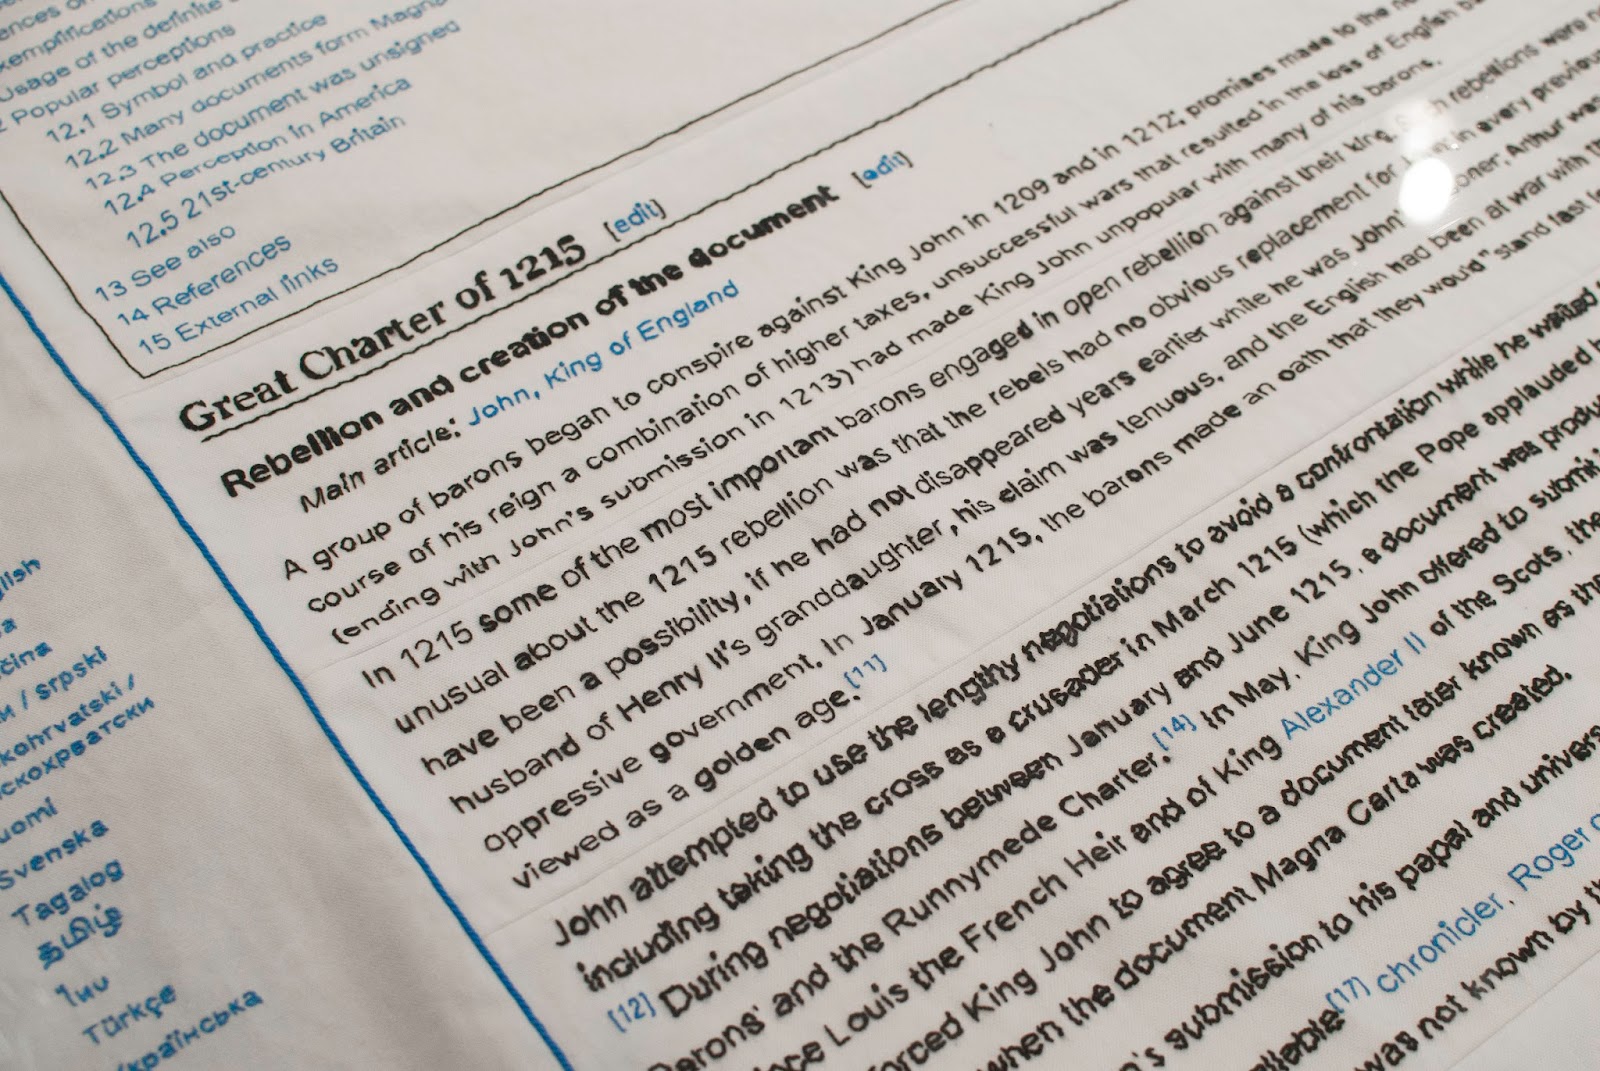 ences on
xemplifications
Usage of the definite
2 Popular perceptions
12.1 Symbol and practice
12.2 Many documents form Magna
12.3 The document was unsigned
12.4 Perception in America
12.5 21st-century Britain
13 See also
14 References
15 External links
Great Charter of 1215 [edit]
Rebellion and creation of the document [edit]
Main article: John, King of England
A group of barons began to conspire against King John in 1209 and in 1212; promises made to the
course of his reign a combination of higher taxes, unsuccessful wars that resulted in the loss of English
(ending with John's submission in 1213) had made King John unpopular with many of his barons.
In 1215 some of the most important barons engaged in open rebellion against their king. Such rebellions were
unusual about the 1215 rebellion was that the rebels had no obvious replacement for John in every previous
have been a possibility, if he had not disappeared years earlier while he was John' oner. Arthur was
husband of Henry II's granddaughter, his claim was tenuous, and the English had been at war with
oppressive government. In January 1215, the barons made an oath that they would "stand fast
viewed as a golden age.[11]
John attempted to use the lengthy negotiations to avoid a confrontation while he waited
including taking the cross as a crusader in March 1215 (which the Pope applauded
[12] During negotiations between January and June 1215, a document was produ
Barons' and the Runnymede Charter.[14] In May, King John offered to submit
ince Louis the French Heir and of King Alexander II of the Scots, the
forced King John to agree to a document later known as the
when the document Magna Carta was created.
n's submission to his papal and univers
ailable[17] chronicler, Roger
was not known by
glish
čina
ки / srpski
kohrvatski /
скохрватски
uomi
Svenska
Tagalog
தமிழ்
ไทย
Türkçe
Українська